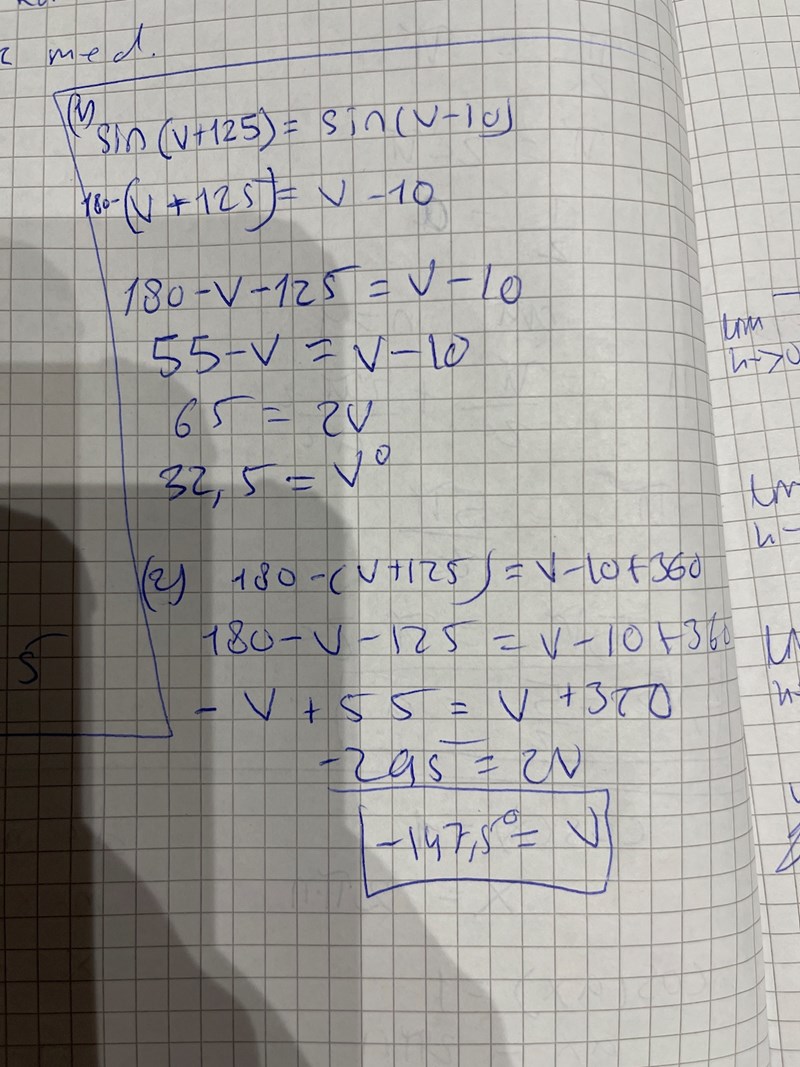 med.
(1) sin(v+125) = sin(v-10)
180-(v+125) = v-10
180-v-125 = v-10
55-v = v-10
65 = 2v
32,5 = v°
(2) 180-(v+125) = v-10+360
180-v-125 = v-10+360
-v+55 = v+350
-295 = 2v
-147,5° = v
5
lim
h->0